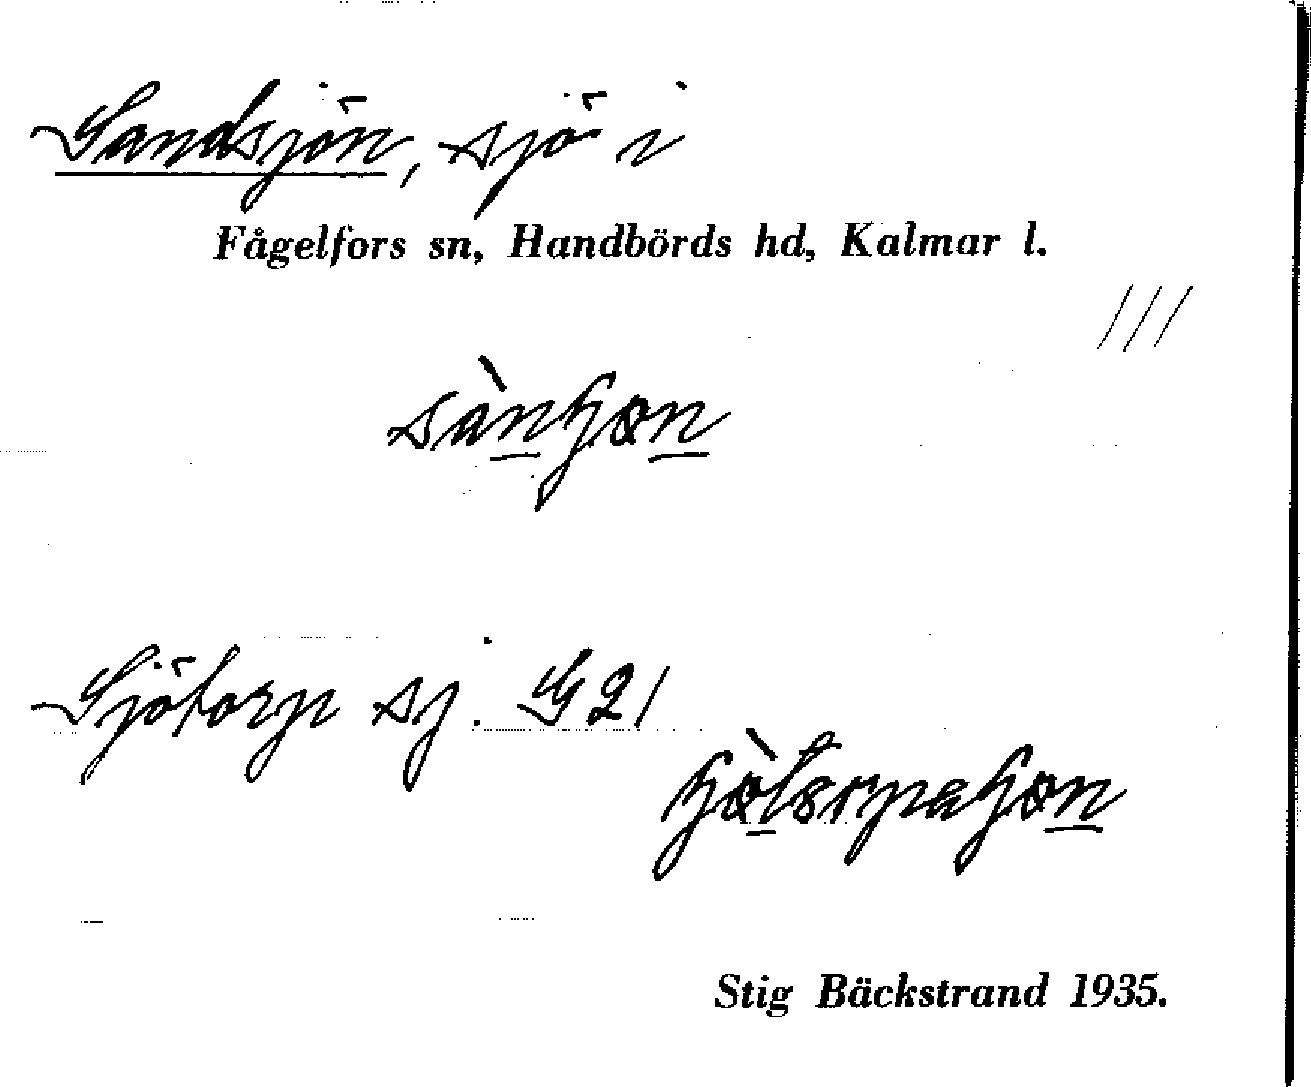 Sandsjön, sjö i
Fågelfors sn, Handbörds hd, Kalmar l.
///
Sjötorp sj. G21
Stig Bäckstrand 1935.